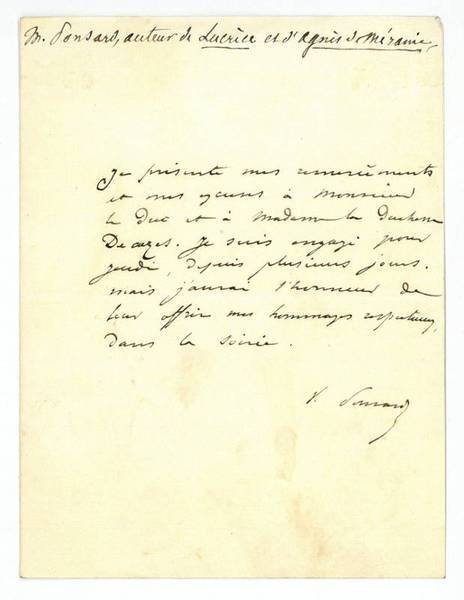 M. Ponsard, auteur de Lucrèce et d'Agnès de Méranie.
Je présente mes remerciements
et mes excuses à Monsieur
le Duc et à Madame la Duchesse
Decazes. Je suis engagé pour
jeudi, depuis plusieurs jours.
mais j'aurai l'honneur de
leur offrir mes hommages respectueux,
dans la soirée.
F. Ponsard